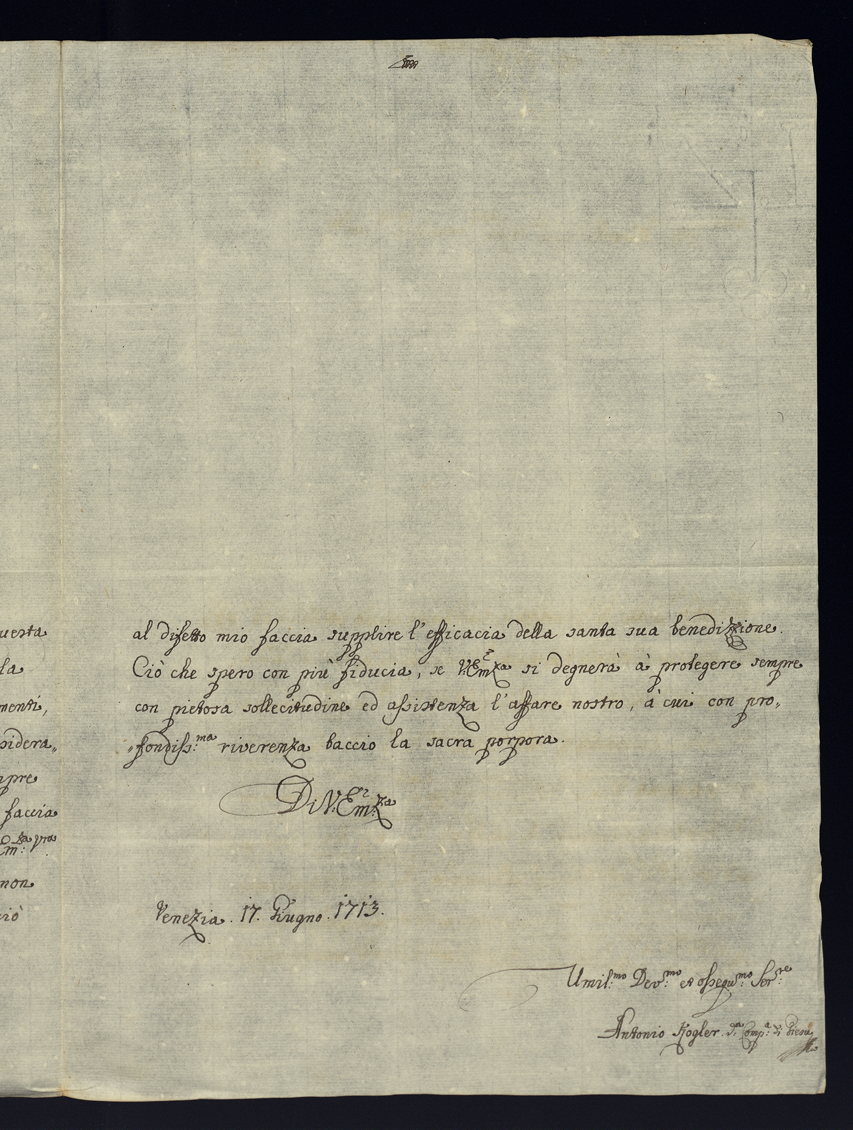 uesta
la
menti,
sidera„
mpre
faccia
Em:za vra
non
ciò
al difetto mio faccia supplire l'efficacia della santa sua benedizzione.
Ciò che spero con più fiducia, se V.Emza si degnerà à protegere sempre
con pietosa sollecitudine ed assistenza l'affare nostro, à cui con pro„
„fondiss:ma riverenza baccio la sacra porpora.
Di V.Em:za
Venezia. 17. Giugno. 1713.
Umil:mo Dev:mo et ossequ:mo Ser:re
Antonio Kogler. Comp:a di Giesù